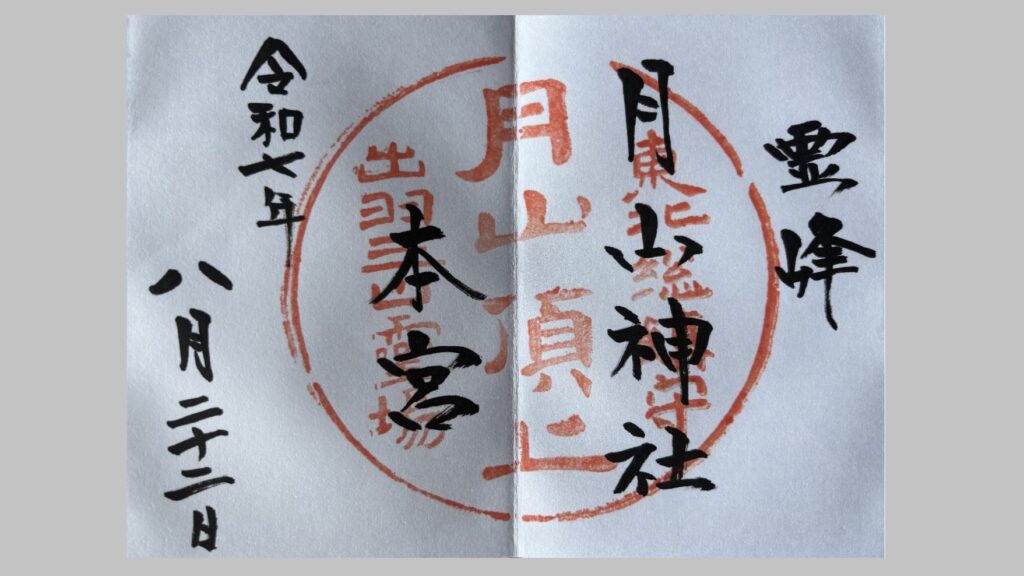 霊峰
月山神社
本宮
令和七年
八月二十二日
東北総鎮守
月山頂上
出羽三山霊場